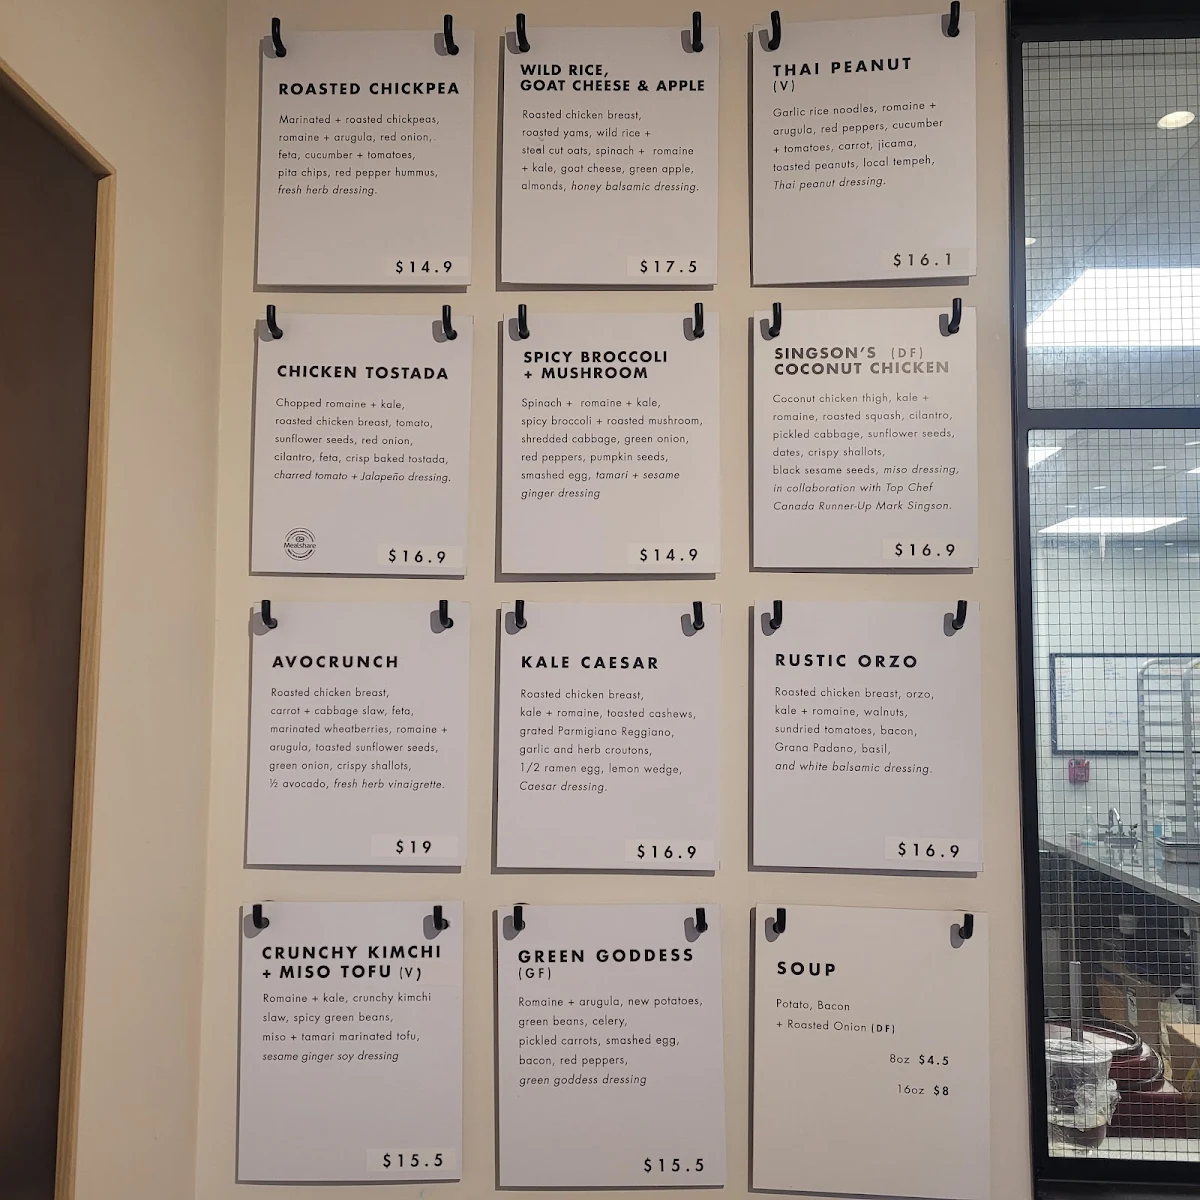 ROASTED CHICKPEA
Marinated + roasted chickpeas,
romaine + arugula, red onion,
feta, cucumber + tomatoes,
pita chips, red pepper hummus,
fresh herb dressing.
$14.9
WILD RICE,
GOAT CHEESE & APPLE
Roasted chicken breast,
roasted yams, wild rice +
steel cut oats, spinach + romaine
+ kale, goat cheese, green apple,
almonds, honey balsamic dressing.
$17.5
THAI PEANUT
(V)
Garlic rice noodles, romaine +
arugula, red peppers, cucumber
+ tomatoes, carrot, jicama,
toasted peanuts, local tempeh,
Thai peanut dressing.
$16.1
CHICKEN TOSTADA
Chopped romaine + kale,
roasted chicken breast, tomato,
sunflower seeds, red onion,
cilantro, feta, crisp baked tostada,
charred tomato + Jalapeño dressing.
Mealshare
$16.9
SPICY BROCCOLI
+ MUSHROOM
Spinach + romaine + kale,
spicy broccoli + roasted mushroom,
shredded cabbage, green onion,
red peppers, pumpkin seeds,
smashed egg, tamari + sesame
ginger dressing
$14.9
SINGSON'S (DF)
COCONUT CHICKEN
Coconut chicken thigh, kale +
romaine, roasted squash, cilantro,
pickled cabbage, sunflower seeds,
dates, crispy shallots,
black sesame seeds, miso dressing,
in collaboration with Top Chef
Canada Runner-Up Mark Singson.
$16.9
AVOCRUNCH
Roasted chicken breast,
carrot + cabbage slaw, feta,
marinated wheatberries, romaine +
arugula, toasted sunflower seeds,
green onion, crispy shallots,
½ avocado, fresh herb vinaigrette.
$19
KALE CAESAR
Roasted chicken breast,
kale + romaine, toasted cashews,
grated Parmigiano Reggiano,
garlic and herb croutons,
1/2 ramen egg, lemon wedge,
Caesar dressing.
$16.9
RUSTIC ORZO
Roasted chicken breast, orzo,
kale + romaine, walnuts,
sundried tomatoes, bacon,
Grana Padano, basil,
and white balsamic dressing.
$16.9
CRUNCHY KIMCHI
+ MISO TOFU (V)
Romaine + kale, crunchy kimchi
slaw, spicy green beans,
miso + tamari marinated tofu,
sesame ginger soy dressing
$15.5
GREEN GODDESS
(GF)
Romaine + arugula, new potatoes,
green beans, celery,
pickled carrots, smashed egg,
bacon, red peppers,
green goddess dressing
$15.5
SOUP
Potato, Bacon
+ Roasted Onion (DF)
8oz $4.5
16oz $8